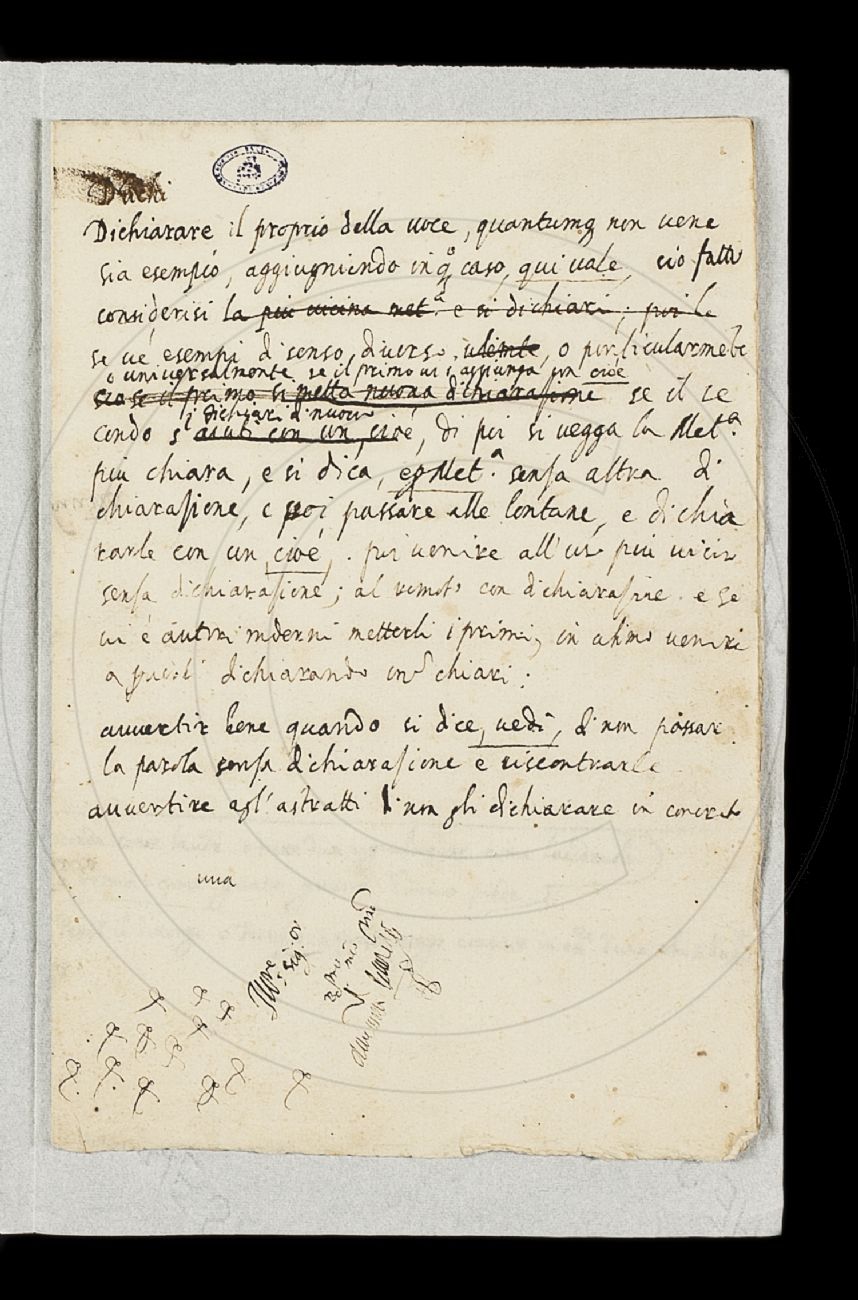 Duchi
Dichiarare il proprio della uoce, quantumq non uene
sia esempio, aggiugniendo in q.o caso, qui uale, ciò fatto
considerisi la più uicina met.a e si dichiari; poi le
se ue esempi di senso diuerso, o
o uniuersalmente se il primo ui s'aggiunga un cioè
se il primo si metta nuoua dichiarasione se il se
si dichiari di nuouo
condo s'aiuti con un cioè, di poi si uegga la Met.a
più chiara, e si dica, e p Met.a sensa altra di
chiarasione, e poi passare alle lontane, e dichia
rarle con un cioè, poi uenire all'uso più uicin
sensa dichiarasione; al remoto con dichiarasine. e se
ui è autori moderni metterli i primi, in ultimo uenire
a dichiarando chiari.
auuertir bene quando si dice, uedi, di non passar
la parola sensa dichiarasione e riscontrarle
auuertire agl'astratti di non gli dichiarare in concreto
una
Ill.re sig.or